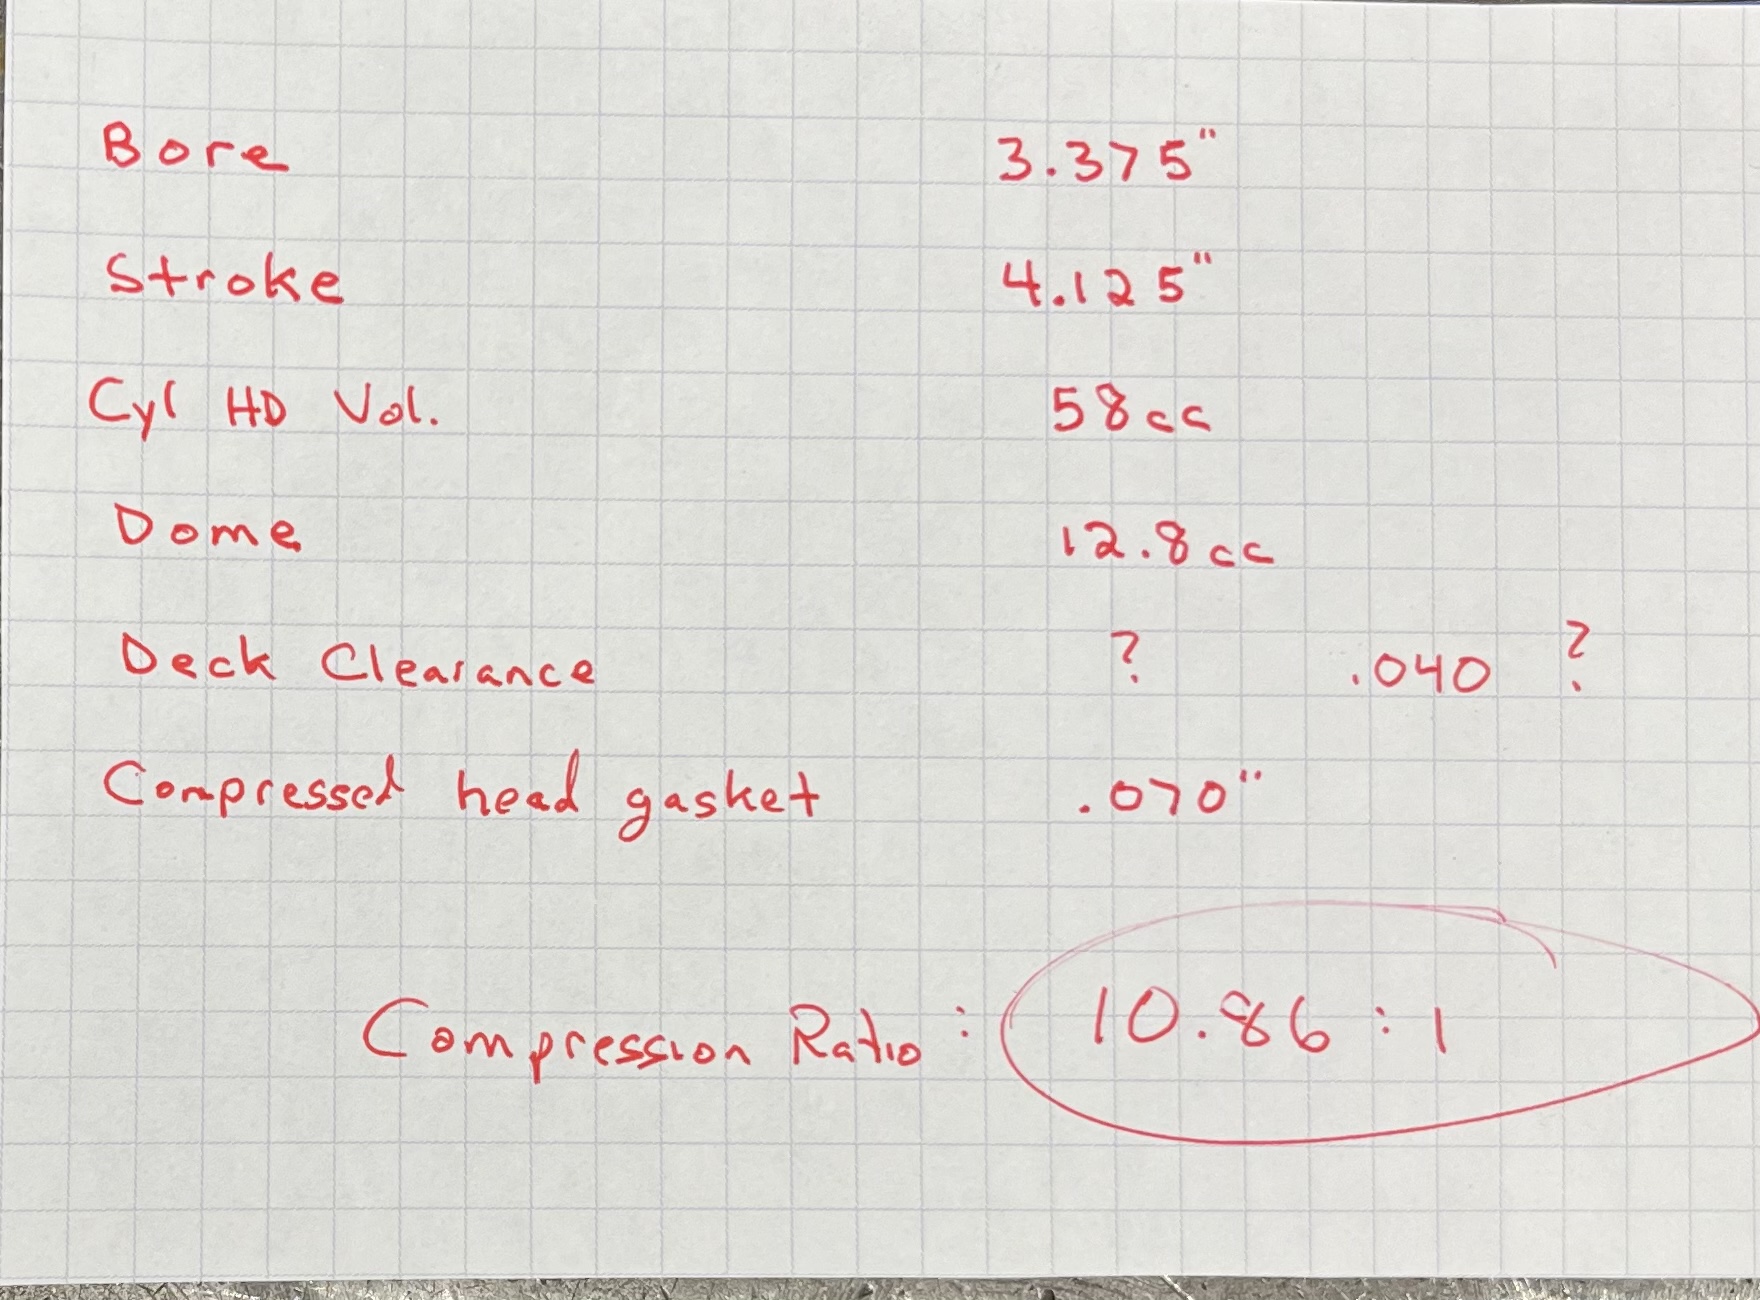 Bore 3.375"
Stroke 4.125"
Cyl HD Vol. 58cc
Dome 12.8cc
Deck Clearance ? .040 ?
Compressed head gasket .070"
Compression Ratio: 10.86:1